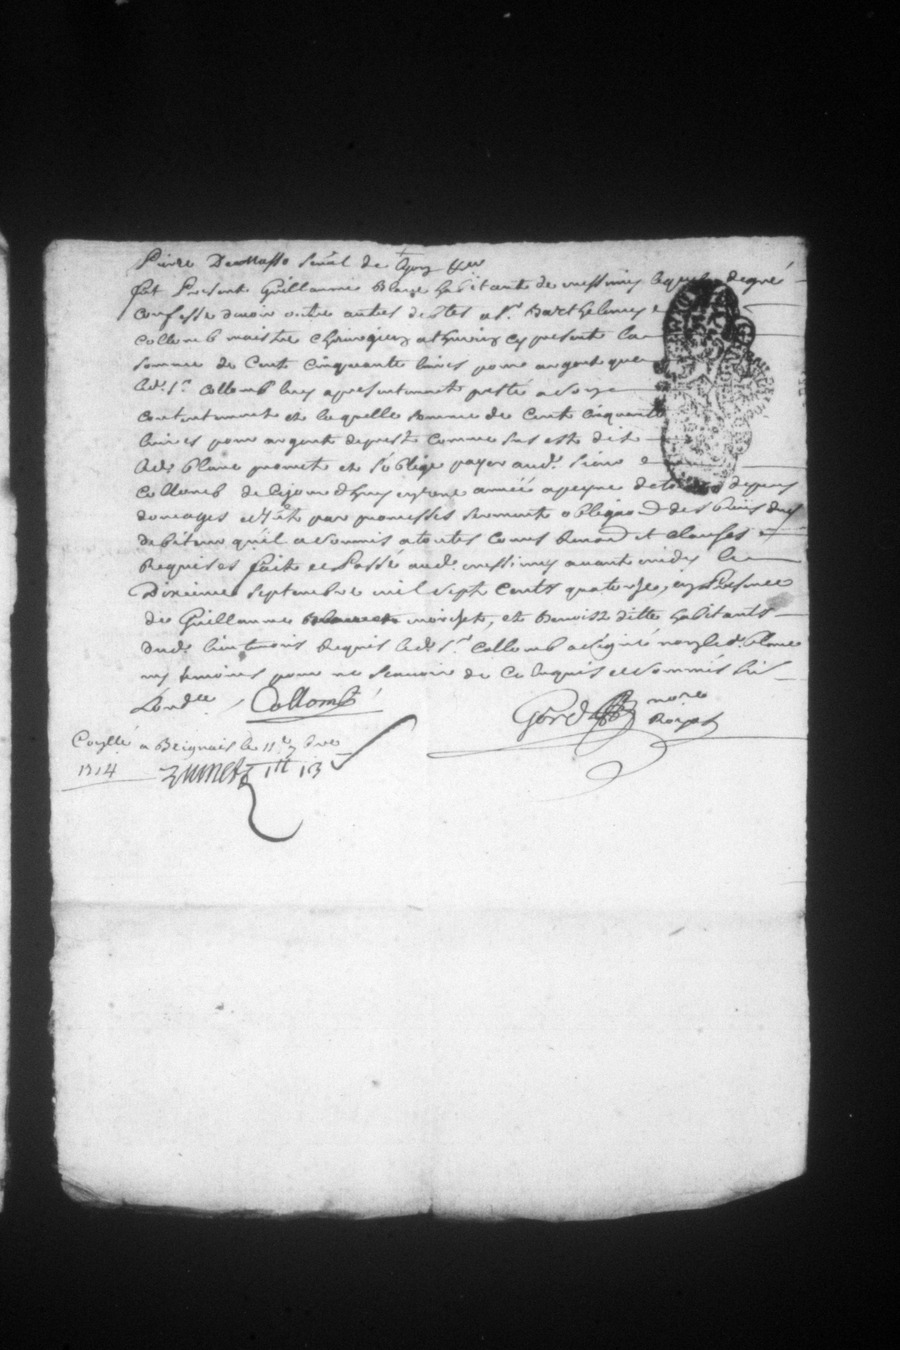 Pierre Demasso senal de Lyon
fut Present Guillaume Blanc habitant de messimy lequel degré
Confesse devoir outre autres debtes a Sr. Barthelemy
Collomb maistre Chirurgien a thurins cy present la
somme de Cent Cinquante livres pour argent que
led. Sr. Collomb luy a presentement presté a son
Contentement et laquelle somme de Cent Cinquante
livres pour argent depret comme sus est dit
led. blanc promet et s'oblige payer aud. sieur
Collomb de ce jourdhuy en une année a peyne de tous depens
domages et par promesses serment obligaon des biens dud
debiteur quil a soumis a toutes Cours Renond et Clauses
Requises fait et Passé aud. messimy avant midy le
Dixieme septembre mil sept Cents quatorze, en Presence
de Guillaume et Benoist habitants
dud. lieu temoins Requis led. Sr. Collomb a signé non led. blanc
ny temoins pour ne scavoir de Ce enquis et sommés
Collomb
nore
Royal
Con̅llé a Brignais le 11e 7bre
1714